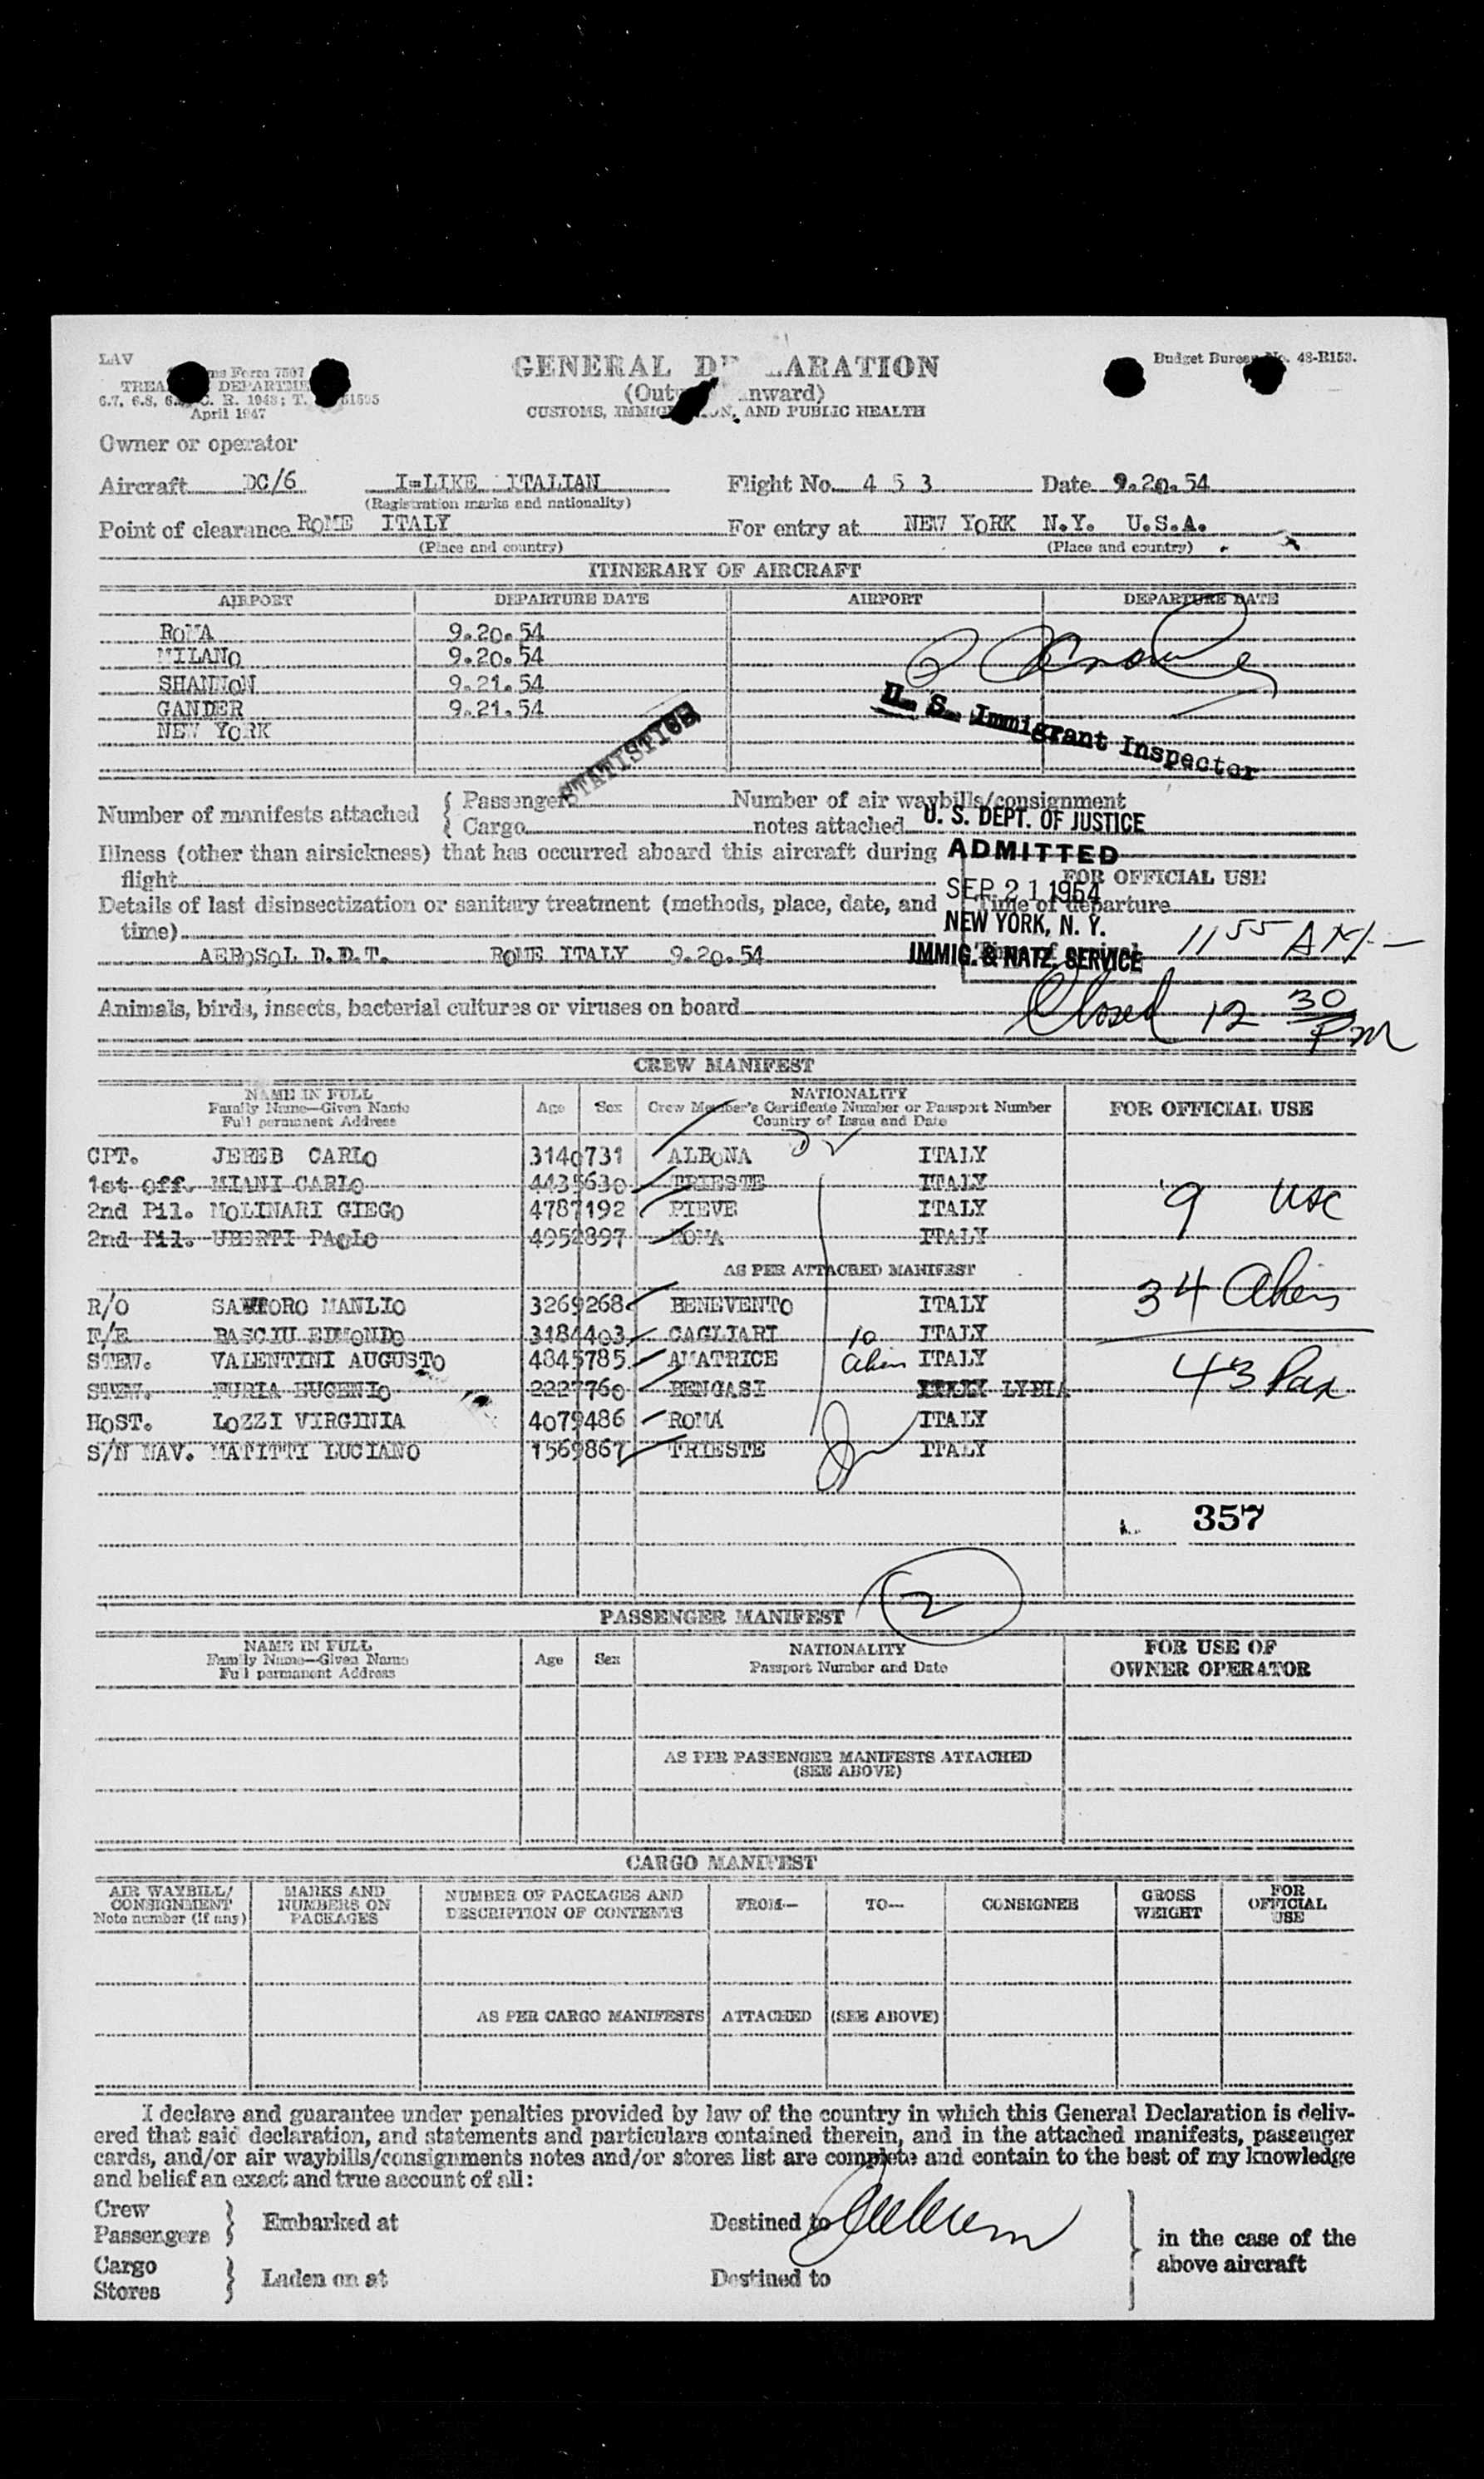 LAV
GENERAL D ARATION
Budget Bureau No. 48-R153.
ns Form 7507
TREA DEPARTME
(Out nward)
6.7, 6.8, 6. C. R. 1943; T. 51595
April 1947
CUSTOMS, IMMIG ON, AND PUBLIC HEALTH
Owner or operator
Aircraft DC/6 I=LIKE ITALIAN Flight No. 4 5 3 Date 9.20.54
(Registration marks and nationality)
Point of clearance ROME ITALY For entry at NEW YORK N.Y. U.S.A.
(Place and country) (Place and country)
ITINERARY OF AIRCRAFT
AIRPORT DEPARTURE DATE AIRPORT DEPARTURE DATE
ROMA 9.20.54
MILANO 9.20.54
SHANNON 9.21.54
GANDER 9.21.54
NEW YORK
U. S. Immigrant Inspector
STATISTICS
Number of manifests attached { Passenger Number of air waybills/consignment
{ Cargo notes attached
U. S. DEPT. OF JUSTICE
Illness (other than airsickness) that has occurred aboard this aircraft during
flight
ADMITTED
FOR OFFICIAL USE
SEP 21 1954
Details of last disinsectization or sanitary treatment (methods, place, date, and
time)
Time of departure
NEW YORK, N. Y.
AEROSOL D.D.T. ROME ITALY 9.20.54
IMMIG. & NATZ. SERVICE
1155 AM
Animals, birds, insects, bacterial cultures or viruses on board
Closed 12 30 PM
CREW MANIFEST
NAME IN FULL
Family Name—Given Name
Full permanent Address
Age Sex
NATIONALITY
Crew Member's Certificate Number or Passport Number
Country of Issue and Date
FOR OFFICIAL USE
CPT. JEREB CARLO 3140731 ALBONA ITALY
1st off. MIANI CARLO 4435630 TRIESTE ITALY
2nd Pil. MOLINARI GIEGO 4787192 PIEVE ITALY
2nd Pil. UBERTI PAOLO 4952897 ROMA ITALY
9 USC
AS PER ATTACHED MANIFEST
34 Aliens
R/O SANTORO MANLIO 3269268 BENEVENTO ITALY
F/E PASCIU EDMONDO 3184403 CAGLIARI 10 ITALY
STEW. VALENTINI AUGUSTO 4845785 AMATRICE Alien ITALY
43 Pax
STEW. FURIA EUGENIO 2227760 BENGASI LYBIA
HOST. LOZZI VIRGINIA 4079486 ROMA ITALY
S/N NAV. MATITTI LUCIANO 1569867 TRIESTE ITALY
357
2
PASSENGER MANIFEST
NAME IN FULL
Family Name—Given Name
Full permanent Address
Age Sex
NATIONALITY
Passport Number and Date
FOR USE OF
OWNER OPERATOR
AS PER PASSENGER MANIFESTS ATTACHED
(SEE ABOVE)
CARGO MANIFEST
AIR WAYBILL/
CONSIGNMENT
Note number (if any)
MARKS AND
NUMBERS ON
PACKAGES
NUMBER OF PACKAGES AND
DESCRIPTION OF CONTENTS
FROM—
TO—
CONSIGNEE
GROSS
WEIGHT
FOR
OFFICIAL
USE
AS PER CARGO MANIFESTS ATTACHED (SEE ABOVE)
I declare and guarantee under penalties provided by law of the country in which this General Declaration is deliv-
ered that said declaration, and statements and particulars contained therein, and in the attached manifests, passenger
cards, and/or air waybills/consignments notes and/or stores list are complete and contain to the best of my knowledge
and belief an exact and true account of all:
Crew
Passengers } Embarked at Destined to
Cargo
Stores } Laden on at Destined to
} in the case of the
above aircraft